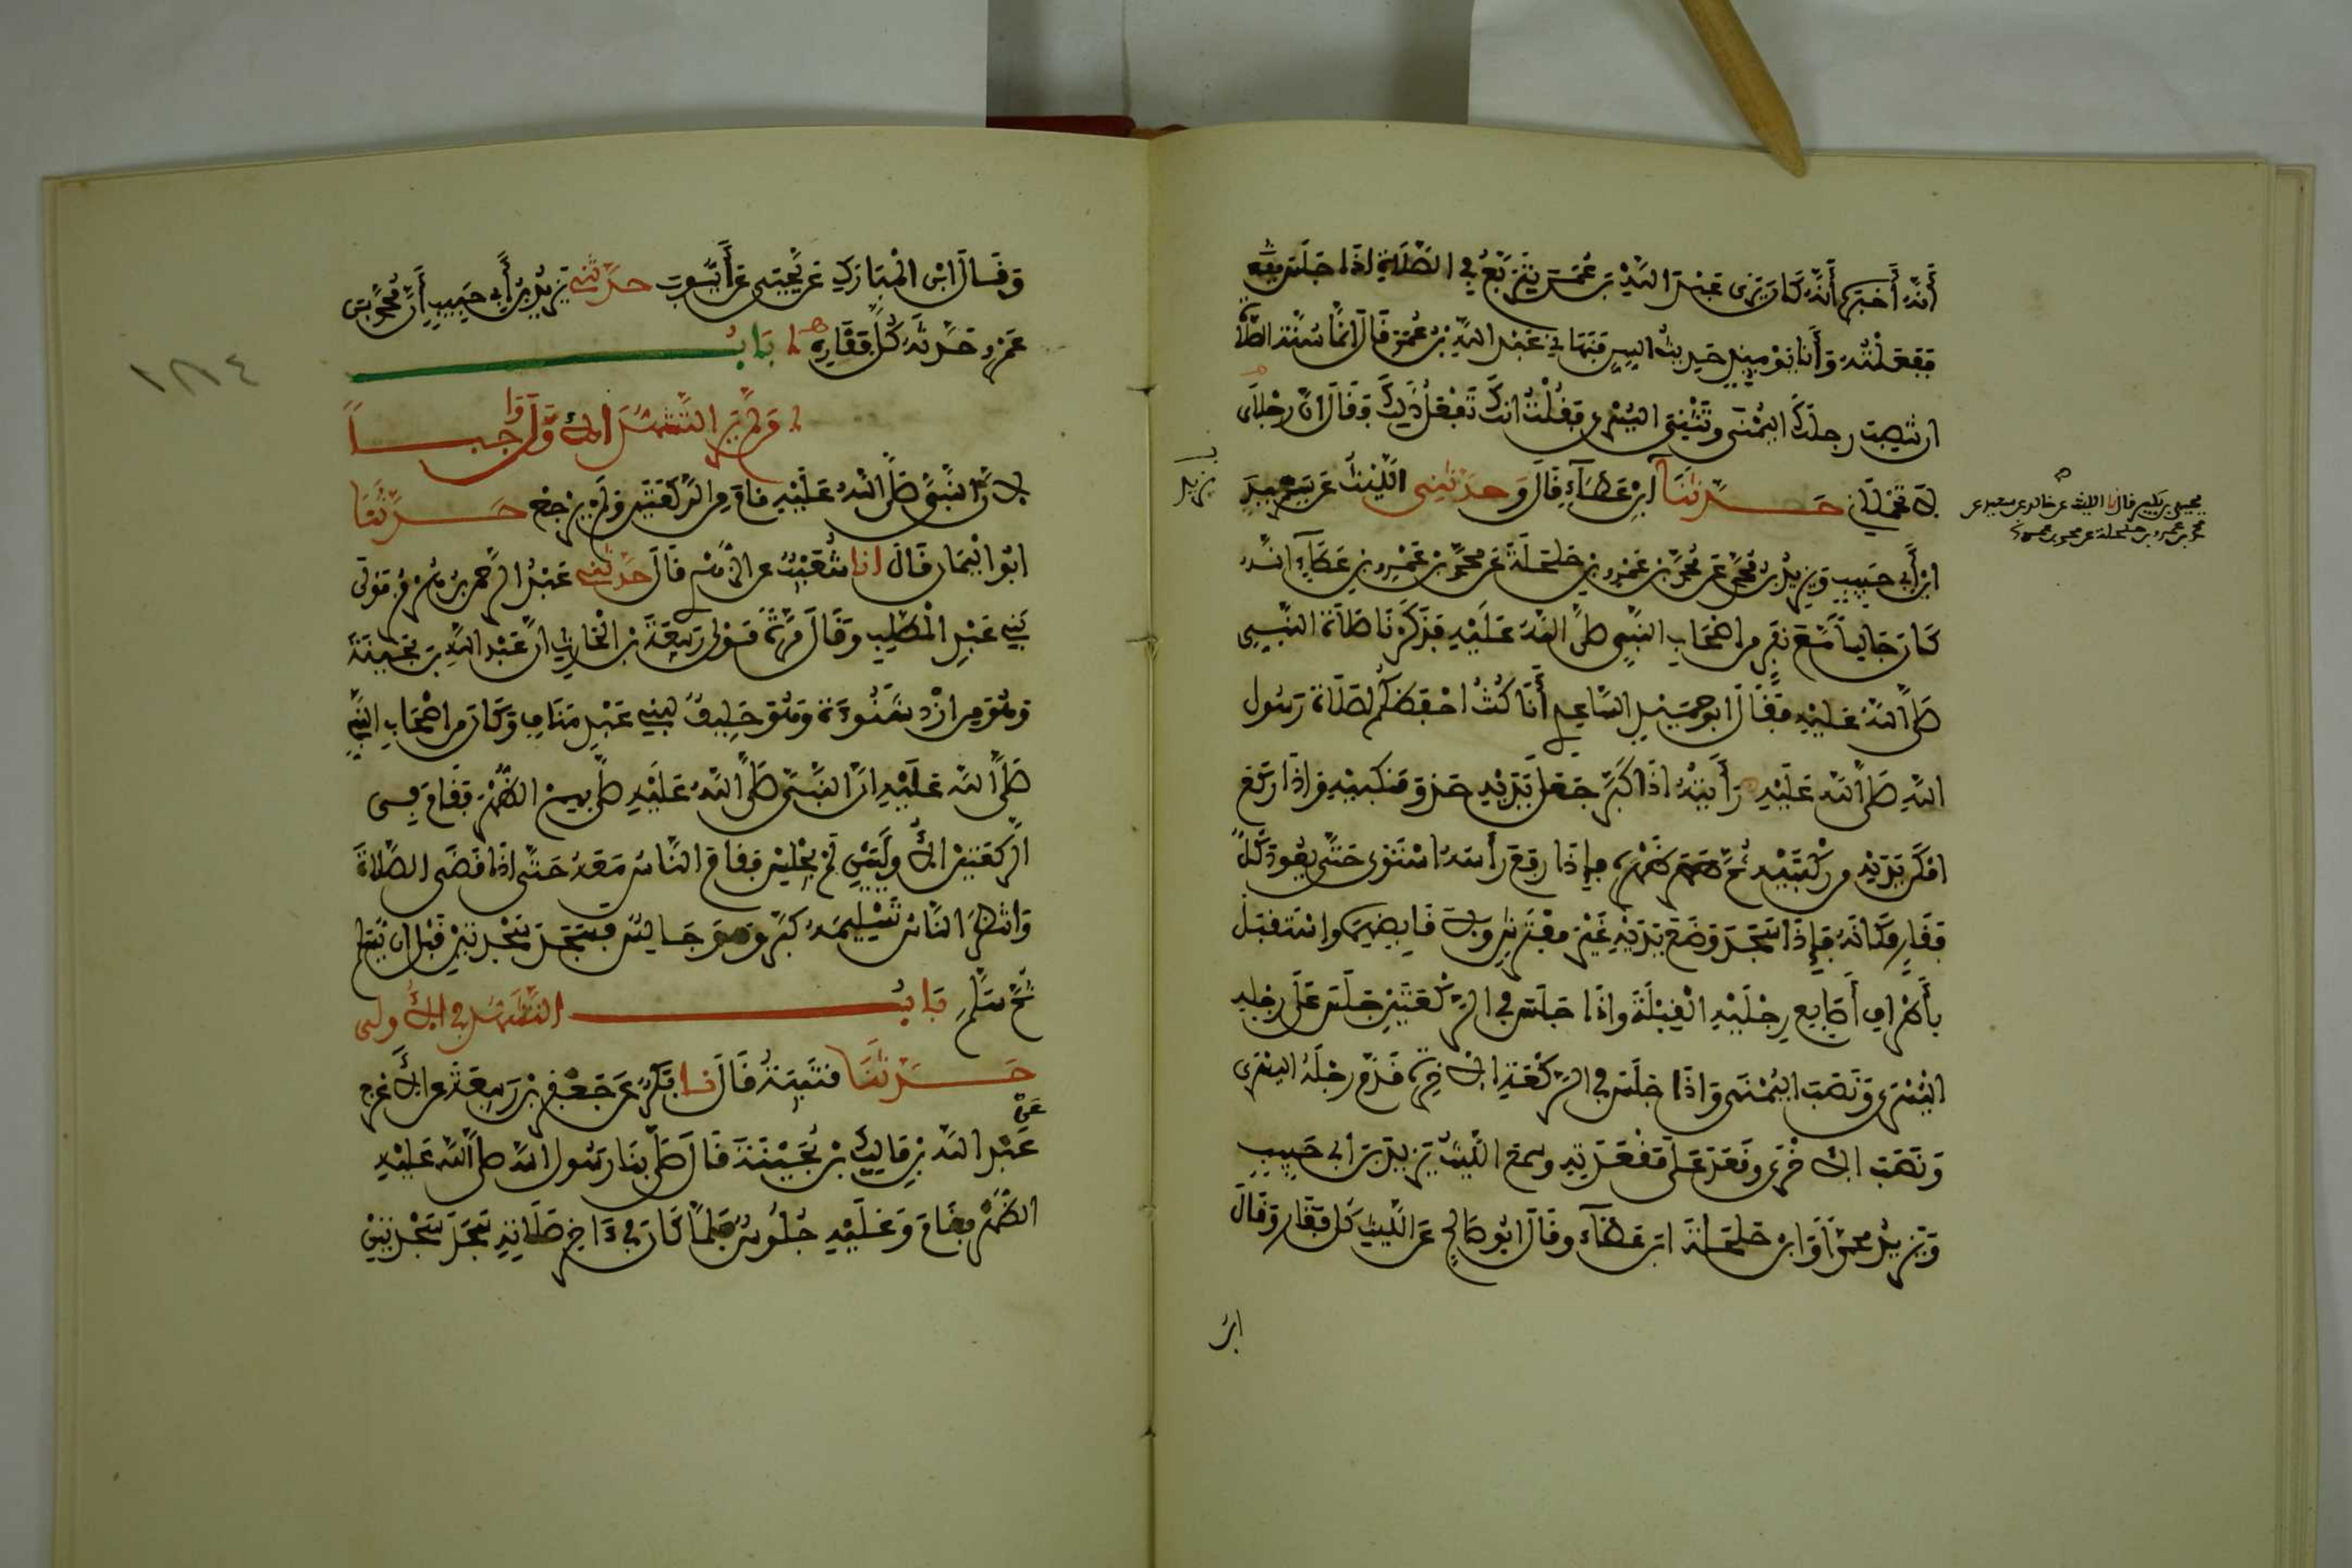 أَنَّهُ أَخْبَرَهُ أَنَّهُ كَانَ يَرَى عَبْدَ اللهِ بْنَ عُمَرَ يَتَرَبَّعُ فِي الصَّلَاةِ إِذَا جَلَسَ
فَفَعَلْتُهُ وَأَنَا يَوْمَئِذٍ حَدِيثُ السِّنِّ فَنَهَانِي عَبْدُ اللهِ بْنُ عُمَرَ قَالَ إِنَّمَا سُنَّةُ الصَّلَاةِ
أن تَنْصِبَ رجلَكَ الْيُمْنَى وَتَثْنِيَ الْيُسْرَى فَقُلْتُ إنَّكَ تَفْعَلُ ذَلِكَ فَقَالَ إنَّ رِجْلَيَّ
لا تَحْمِلَانِي حَدَّثَنَا
ابْنُ عَطَاءٍ قَالَ وَحَدَّثَنِي اللَّيْثُ عَنْ يَزِيدَ
يزيد
يحيى بن بكير قال نا الليث عن خالد عن سعيد عن
محمد بن عمرو بن حلحلة عن محمد بن عمرو
ابْنِ أَبِي حَبِيبٍ وَيَزِيدَ بْنِ مُحَمَّدٍ عَنْ مُحَمَّدِ بْنِ عَمْرِو بْنِ حَلْحَلَةَ عَنْ مُحَمَّدِ بْنِ عَمْرِو بْنِ عَطَاءٍ أَنَّهُ
كَانَ جَالِساً مَعَ نَفَرٍ من أَصْحَابِ النَّبِيِّ صَلَّى اللهُ عَلَيْهِ فَذَكَرْنَا صَلَاةَ النَّبِيِّ
صَلَّى اللهُ عَلَيْهِ فَقَالَ أبو حُمَيْدٍ السَّاعِدِي أَنَا كُنْتُ أَحْفَظَكُمْ لِصَلَاةِ رَسُولِ
اللهِ صَلَّى اللهُ عَلَيْهِ رَأَيْتُهُ إذَا كَبَّرَ جَعَلَ يَدَيْهِ حَذْوَ مَنْكِبَيْهِ وَإذَا رَكَعَ
أَمْكَنَ يَدَيْهِ مِن رُكْبَتَيْهِ ثُمَّ هَصَرَ ظَهْرَهُ فَإِذَا رَفَعَ رَأْسَهُ اسْتَوَى حَتَّى يَعُودَ كُلُّ
فَقَارٍ مَكَانَهُ فَإِذَا سَجَدَ وَضَعَ يَدَيْهِ غَيْرَ مُفْتَرِشٍ وَلَا قَابِضِهِمَا وَاسْتَقْبَلَ
بِأَطْرَافِ أَصَابِعِ رِجْلَيْهِ الْقِبْلَةَ وَإذَا جَلَسَ فِي الرَّكْعَتَيْنِ جَلَسَ عَلَى رِجْلِهِ
الْيُسْرَى وَنَصَبَ الْيُمْنَى وَإذَا جَلَسَ فِي الرَّكْعَةِ الْآخِرَةِ قَدَّمَ رِجْلَهُ الْيُسْرَى
وَنَصَبَ الْأُخْرَى وَقَعَدَ عَلَى مَقْعَدَتِهِ وسمع اللَّيْثُ يَزِيدَ بْنَ أَبِي حَبِيبٍ
وَيَزِيدُ مُحَمَّداً وَابْنُ حَلْحَلَةَ ابْنَ عَطَاءٍ وقَالَ أَبُو صَالِحٍ عَنِ اللَّيْثِ كُلُّ فَقَارٍ وَقَالَ
ابن
وَقَالَ ابْنُ الْمُبَارَكِ عَنْ يَحْيَى بْنِ أَيُّوبَ حَدَّثَنِي يَزِيدُ بْنُ أَبِي حَبِيبٍ أَنَّ مُحَمَّدَ بْنَ
عَمْرٍو حَدَّثَهُ كُلُّ فَقَارِهِ بَابُ
من لم يَرَ التَّشَهُّدَ الأول وَاجِباً
لِأَنَّ النَّبِيَّ صَلَّى اللهُ عَلَيْهِ قَامَ مِن الرَّكْعَتَيْنِ وَلَمْ يَرْجِعْ حَدَّثَنَا
أبُو الْيَمَانِ قَالَ انا شُعَيْبٌ عن الزُّهْرِيِّ قَالَ حَدَّثَنِي عَبْدُ الرَّحْمَنِ بْنُ هُرْمُزَ مَوْلَى
بَنِي عَبْدِ الْمُطَّلِبِ وَقَالَ مَرَّةً مَوْلَى رَبِيعَةَ بْنِ الْحَارِثِ أنَّ عَبْدَ اللهِ بْنَ بُحَيْنَةَ
وَهُوَ مِن أَزْدِ شَنُوءَةَ وَهُوَ حَلِيفٌ لِبَنِي عَبْدِ مَنَافٍ وَكَانَ مِن أَصْحَابِ النَّبِيِّ
صَلَّى اللهُ عَلَيْهِ أنَّ النَّبِيَّ صَلَّى اللهُ عَلَيْهِ صَلَّى بِهِمُ الظُّهْرَ فَقَامَ فِي
الرَّكْعَتَيْنِ الْأُولَيَيْنِ لَمْ يَجْلِسْ فَقَامَ النَّاسُ مَعَهُ حَتَّى إذَا قَضَى الصَّلَاةَ
وَانْتَظَرَ النَّاسُ تَسْلِيمَهُ كَبَّرَ وَهُوَ جَالِسٌ فَسَجَدَ سَجْدَتَيْنِ قَبْلَ أنْ يُسَلِّمَ
ثُمَّ سَلَّمَ بَابُ التَّشَهُّدِ فِي الْأُولَى
حَدَّثَنَا قُتَيْبَةُ قَالَ نا بَكْرٌ عَنْ جَعْفَرِ بْنِ رَبِيعَةَ عن الْأَعْرَجِ
عَنْ
عَبْدِ اللهِ بْنِ مَالِكِ بْنِ بُحَيْنَةَ قَالَ صَلَّى بِنَا رَسُولُ اللهِ صلى اللهُ عَلَيْهِ
الظُّهْرَ فَقَامَ وَعَلَيْهِ جُلُوسٌ فَلَمَّا كَانَ فِي آخِرِ صَلَاتِهِ سَجَدَ سَجْدَتَيْنِ